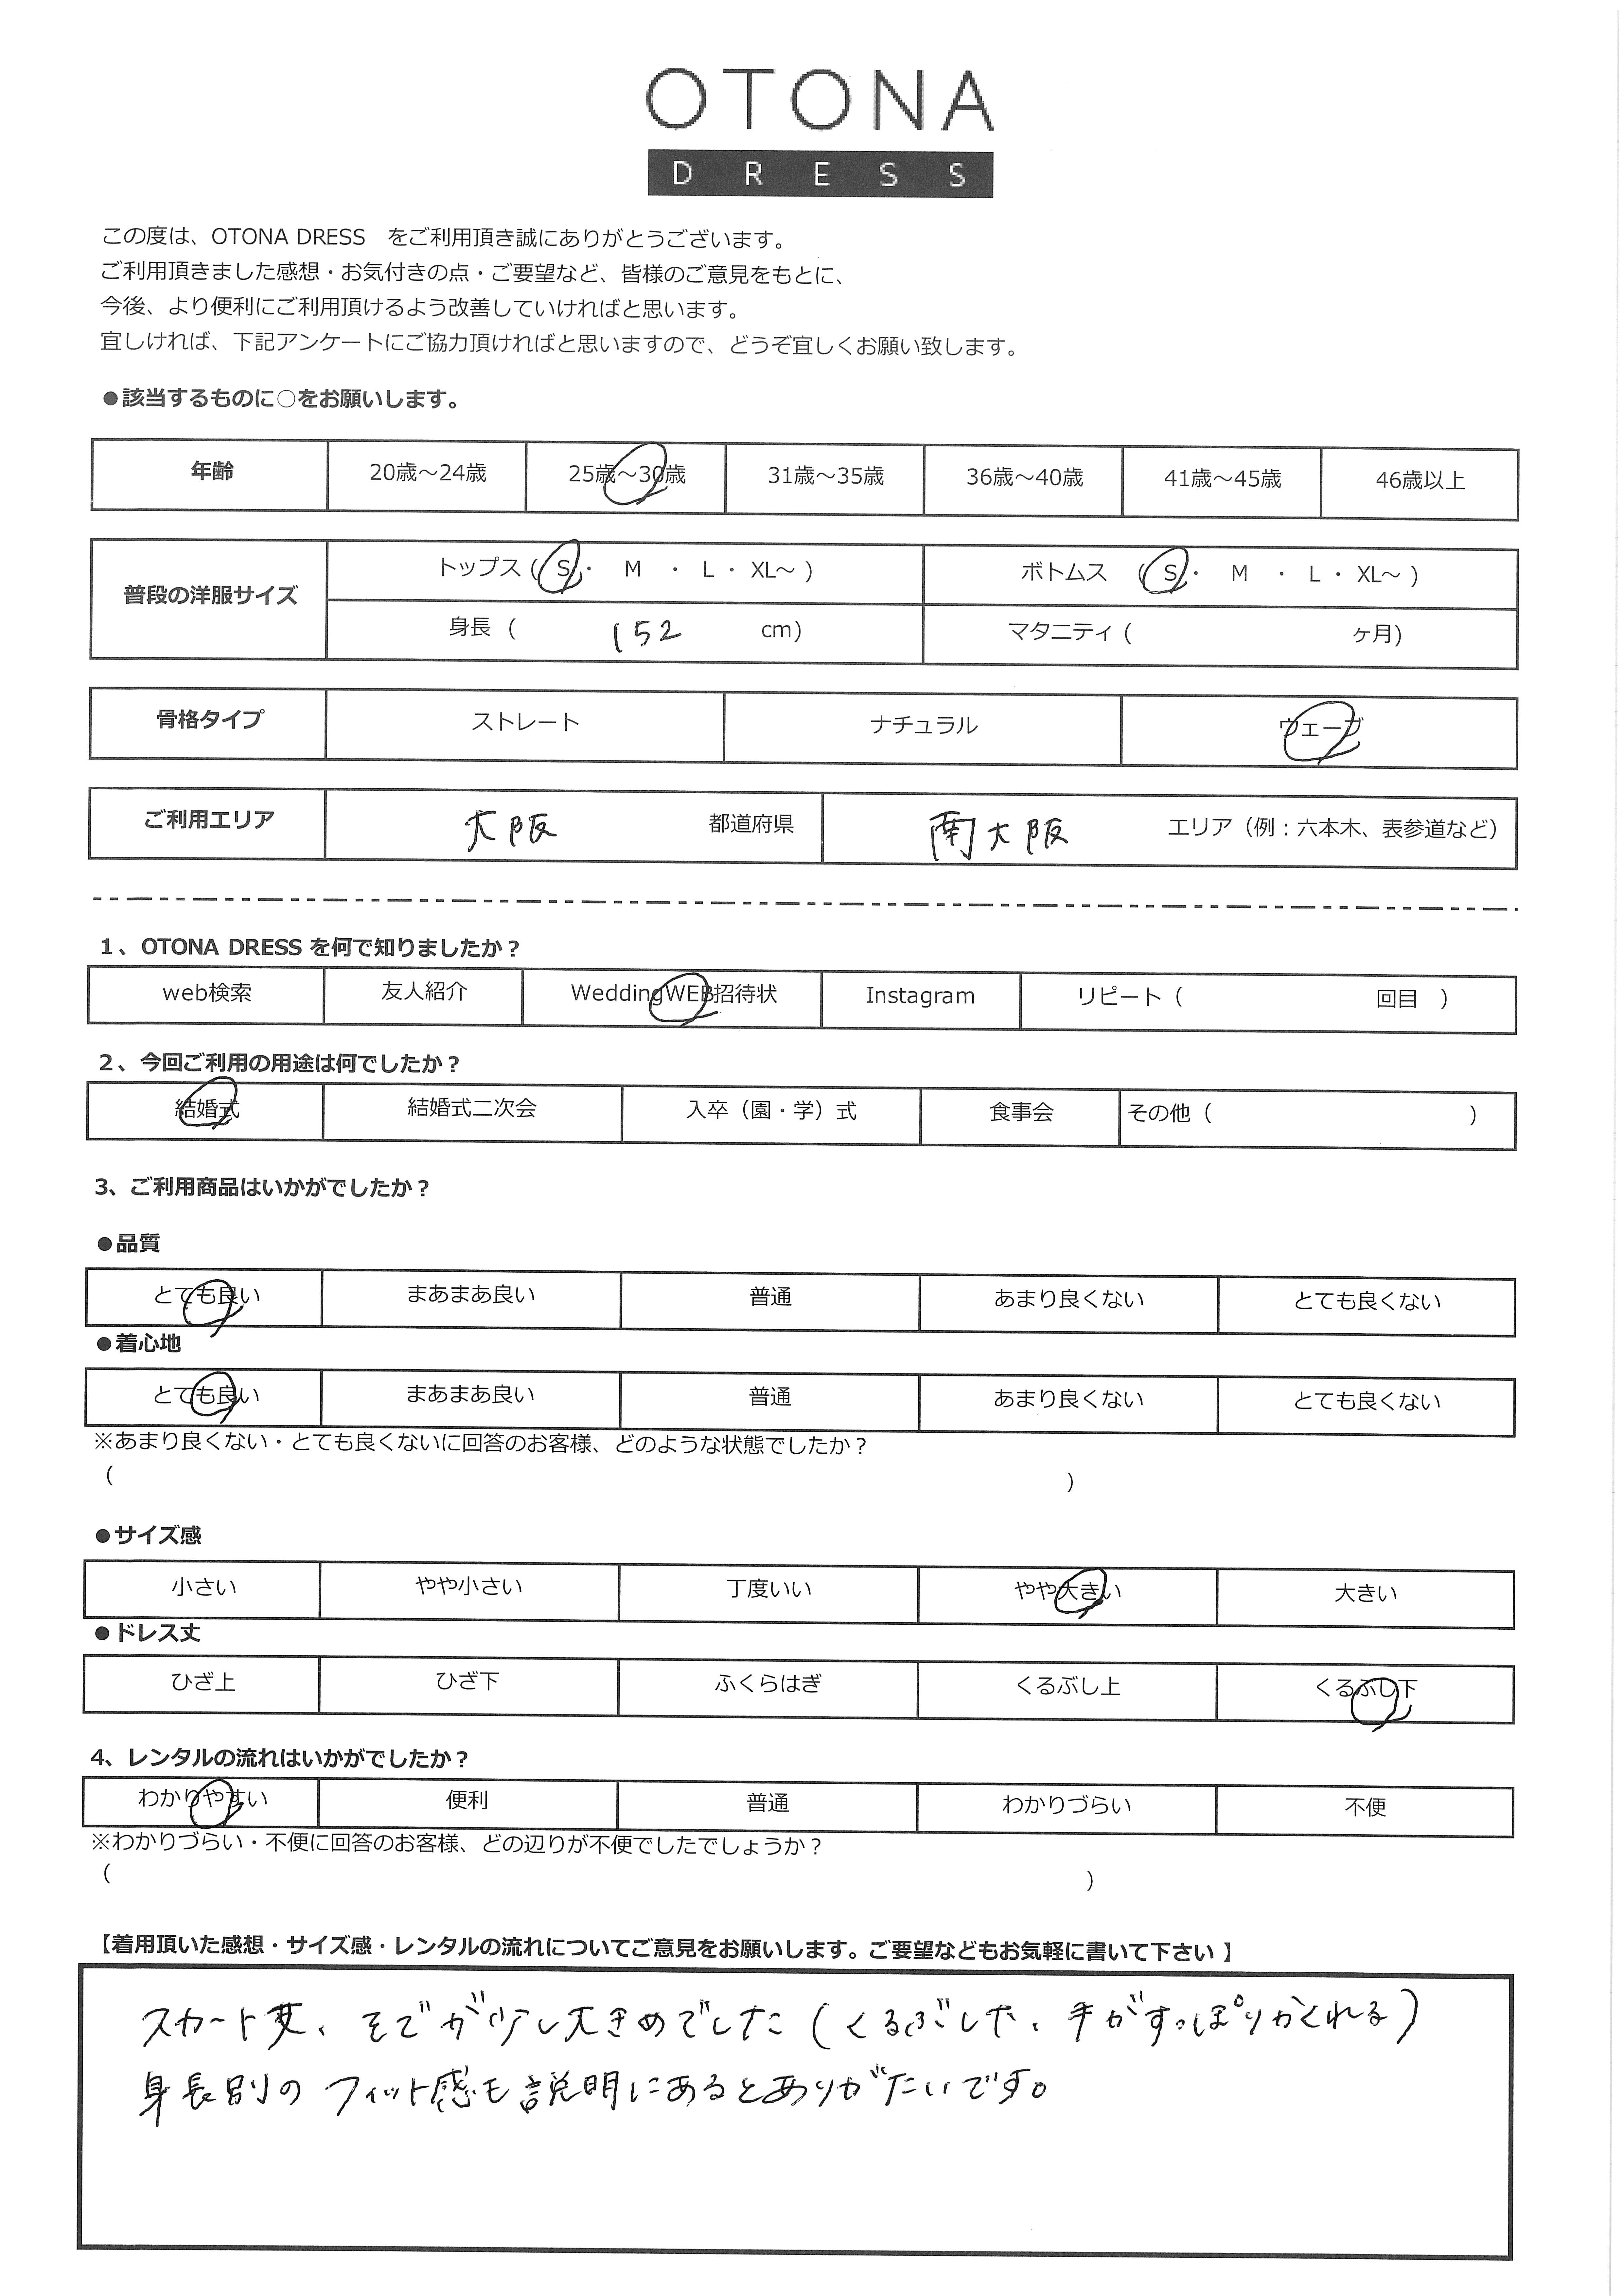 OTONA
DRESS
この度は、OTONA DRESS　をご利用頂き誠にありがとうございます。
ご利用頂きました感想・お気付きの点・ご要望など、皆様のご意見をもとに、
今後、より便利にご利用頂けるよう改善していければと思います。
宜しければ、下記アンケートにご協力頂ければと思いますので、どうぞ宜しくお願い致します。
●該当するものに○をお願いします。
年齢 20歳～24歳 25歳～30歳 31歳～35歳 36歳～40歳 41歳～45歳 46歳以上
普段の洋服サイズ トップス ( S ・ M ・ L ・ XL～ ) ボトムス ( S ・ M ・ L ・ XL～ )
身長 ( 152 cm) マタニティ ( ヶ月)
骨格タイプ ストレート ナチュラル ウェーブ
ご利用エリア 大阪 都道府県 南大阪 エリア（例：六本木、表参道など）
1、OTONA DRESS を何で知りましたか？
web検索 友人紹介 WeddingWEB招待状 Instagram リピート（ 回目 ）
2、今回ご利用の用途は何でしたか？
結婚式 結婚式二次会 入卒（園・学）式 食事会 その他（ ）
3、ご利用商品はいかがでしたか？
●品質
とても良い まあまあ良い 普通 あまり良くない とても良くない
●着心地
とても良い まあまあ良い 普通 あまり良くない とても良くない
※あまり良くない・とても良くないに回答のお客様、どのような状態でしたか？
（ ）
●サイズ感
小さい やや小さい 丁度いい やや大きい 大きい
●ドレス丈
ひざ上 ひざ下 ふくらはぎ くるぶし上 くるぶし下
4、レンタルの流れはいかがでしたか？
わかりやすい 便利 普通 わかりづらい 不便
※わかりづらい・不便に回答のお客様、どの辺りが不便でしたでしょうか？
（ ）
【着用頂いた感想・サイズ感・レンタルの流れについてご意見をお願いします。ご要望などもお気軽に書いて下さい 】
スカート丈、そでが少し大きめでした（くるぶし丈、手がすっぽりかくれる）
身長別のフィット感も説明にあるとありがたいです。